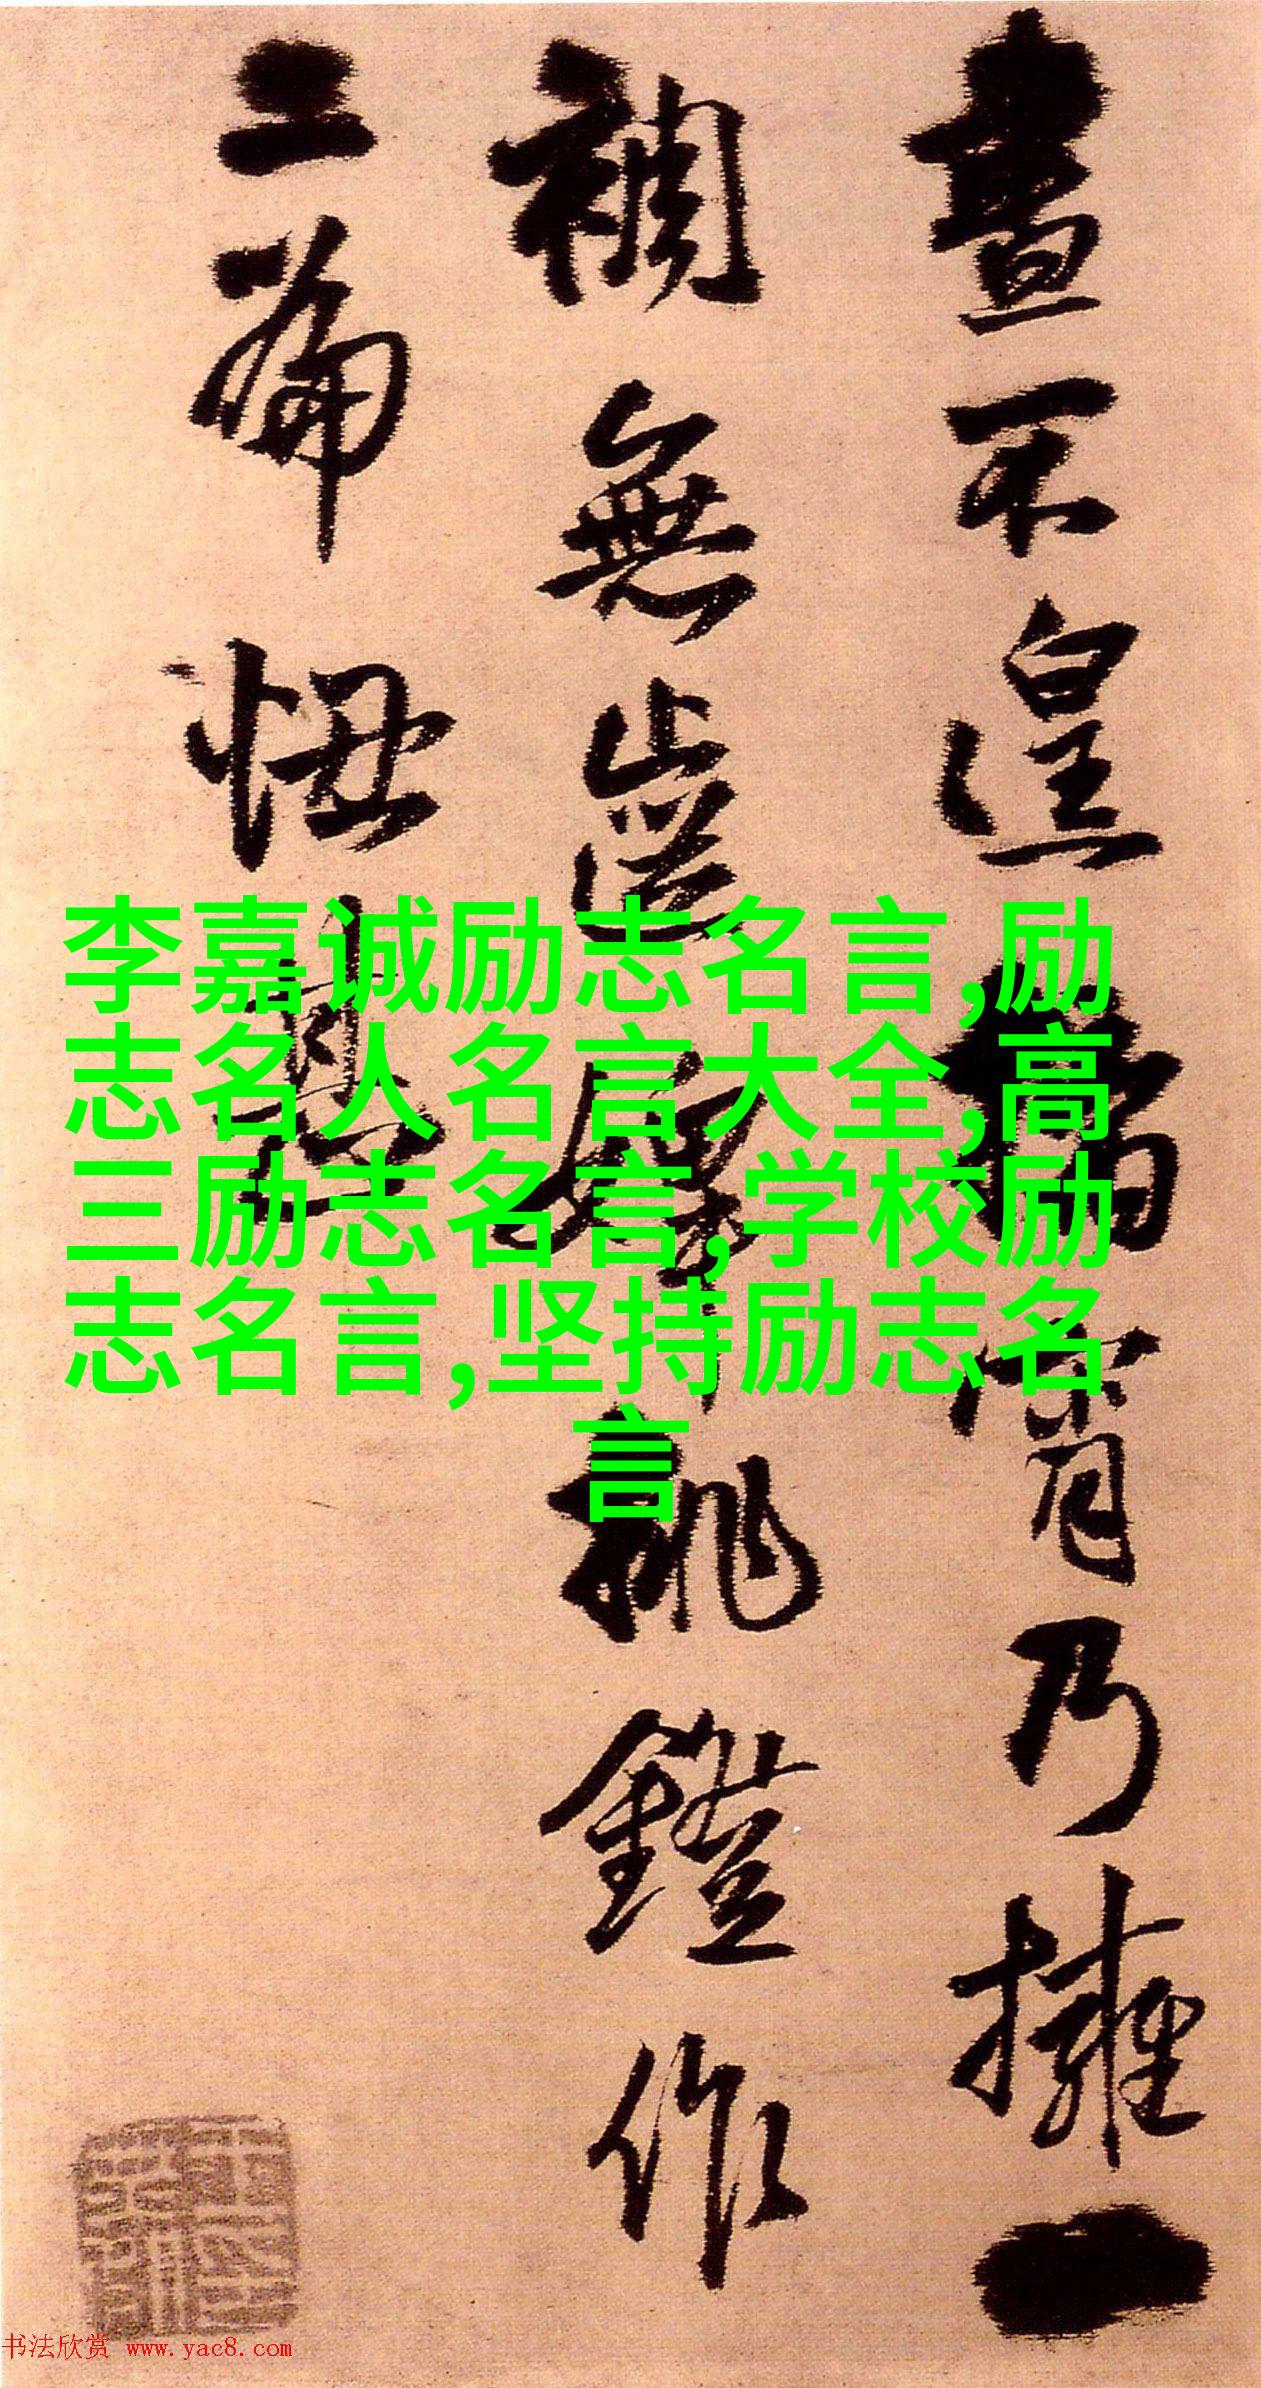 晝不遑宵乃擁一
裯無挑鐙作
二篇
李嘉诚励志名言,励
志名人名言大全,高
三励志名言,学校励
志名言,坚持励志名
言
书法欣赏 www.yac8.com